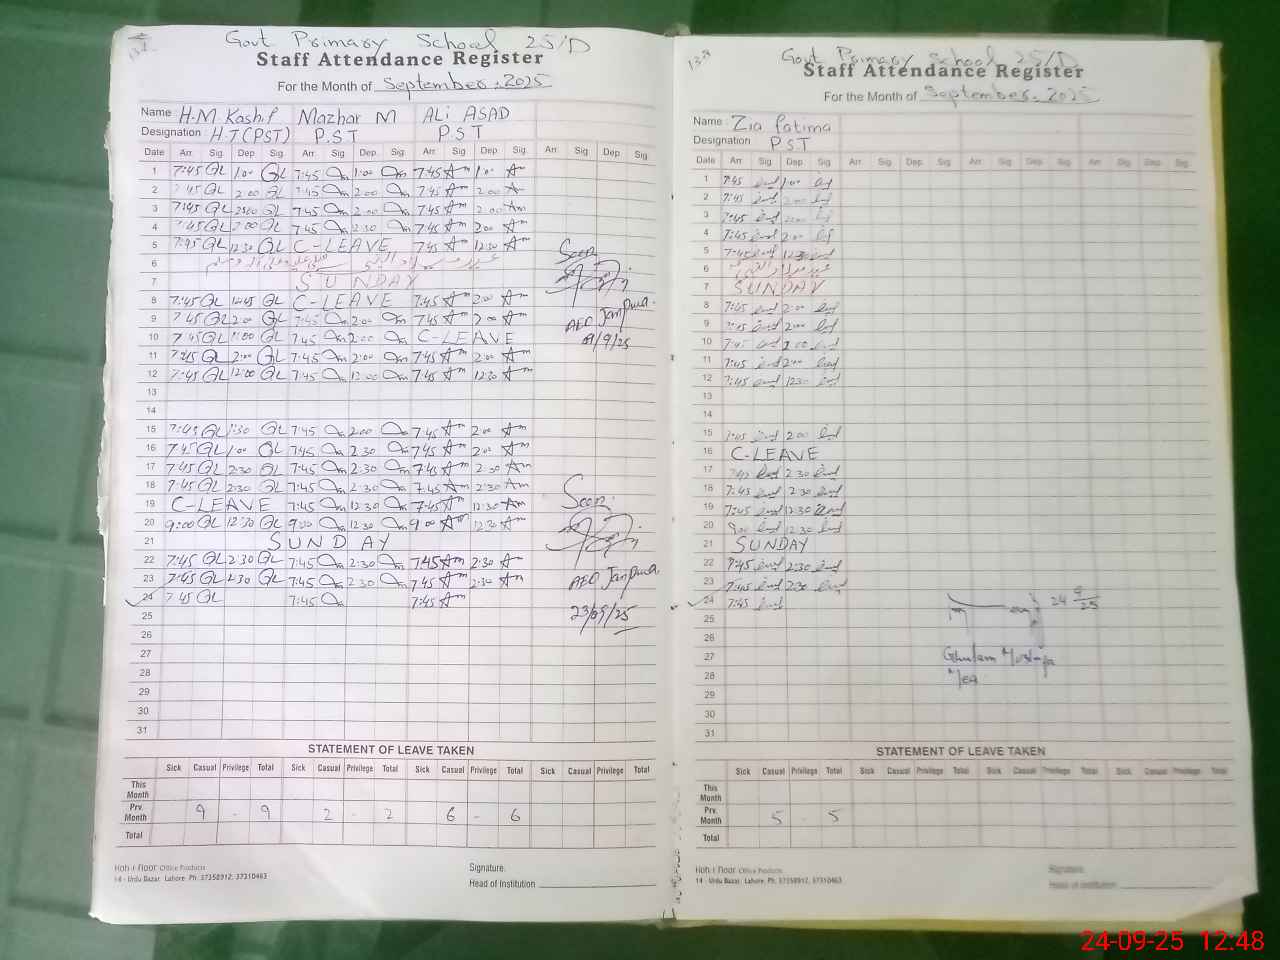 Govt Primary School 25/D
Staff Attendance Register
For the Month of September. 2025
Name H.M. Kashif Mazhar M ALi ASAD
Designation H.T(PST) P.S.T P.S.T
Date Arr. Sig. Dep. Sig. Arr. Sig. Dep. Sig. Arr. Sig. Dep. Sig. Arr. Sig. Dep. Sig.
1 7:45 QL 1:00 QL 7:45 1:00 7:45 Am 1:00 Am
2 7:45 QL 2:00 QL 7:45 2:00 7:45 Am 2:00 Am
3 7:45 QL 2:00 QL 7:45 2:00 7:45 Am 2:00 Am
4 7:45 QL 2:00 QL 7:45 2:30 7:45 Am 2:00 Am
5 7:45 QL 12:30 QL C-LEAVE 7:45 Am 12:30 Am
6
7 SUNDAY
8 7:45 QL QL C-LEAVE 7:45 Am 2:00 Am
9 7:45 QL 2:00 QL 7:45 2:00 7:45 Am 2:00 Am
10 7:45 QL 1:00 QL 7:45 2:00 C-LEAVE
11 7:45 QL 2:00 QL 7:45 2:00 7:45 Am 2:00 Am
12 7:45 QL 12:00 QL 7:45 12:00 7:45 Am 12:30 Am
13
14
15 7:45 QL 1:30 QL 7:45 2:00 7:45 Am 2:00 Am
16 7:45 QL 1:00 QL 7:45 2:30 7:45 Am 2:00 Am
17 7:45 QL 2:30 QL 7:45 2:30 7:45 Am 2:30 Am
18 7:45 QL 2:30 QL 7:45 2:30 7:45 Am 2:30 Am
19 C-LEAVE 7:45 12:30 7:45 Am 12:30 Am
20 9:00 QL 12:30 QL 9:00 12:30 9:00 Am 12:30 Am
21 SUNDAY
22 7:45 QL 2:30 QL 7:45 2:30 7:45 Am 2:30 Am
23 7:45 QL 2:30 QL 7:45 2:30 7:45 Am 2:30 Am
24 7:45 QL 7:45 7:45 Am
25
26
27
28
29
30
31
Seen
AEO
09/9/25
Seen
AEO
23/09/25
STATEMENT OF LEAVE TAKEN
Sick Casual Privilege Total Sick Casual Privilege Total Sick Casual Privilege Total Sick Casual Privilege Total
This Month
Prv. Month 9 - 9 2 - 2 6 - 6
Total
Office Products
14 - Urdu Bazar, Lahore. Ph: 37358912, 37310463
Signature.
Head of Institution
138
Govt Primary School 25/D
Staff Attendance Register
For the Month of September. 2025
Name Zia Fatima
Designation P.S.T
Date Arr. Sig. Dep. Sig. Arr. Sig. Dep. Sig. Arr. Sig. Dep. Sig. Arr. Sig. Dep. Sig.
1 7:45 1:00
2 7:45 2:00
3 7:45 2:00
4 7:45 2:00
5 7:45 12:30
6 عید میلاد النبی
7 SUNDAY
8 7:45 2:00
9 7:45 2:00
10 7:45 2:00
11 7:45 2:00
12 7:45 12:30
13
14
15 7:45 2:00
16 C-LEAVE
17 7:45 2:30
18 7:45 2:30
19 7:45 12:30
20 9:00 12:30
21 SUNDAY
22 7:45 2:30
23 7:45 2:30
24 7:45
25
26
27
28
29
30
31
24 9/25
Ghulam
Mea
STATEMENT OF LEAVE TAKEN
Sick Casual Privilege Total Sick Casual Privilege Total Sick Casual Privilege Total Sick Casual Privilege Total
This Month
Prv. Month 5 - 5
Total
Office Products
14 - Urdu Bazar, Lahore. Ph: 37358912, 37310463
Signature.
Head of Institution
24-09-25 12:48